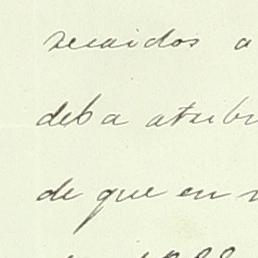 recaidos a
deba atribu
de que en